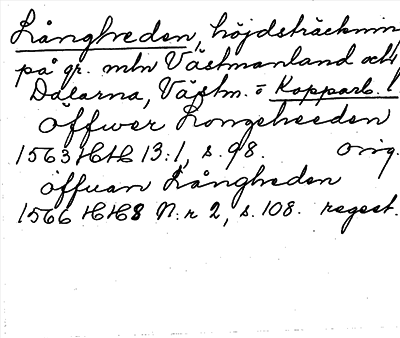 Långheden, höjdsträcknin
på gr. mln Västmanland och
Dalarna, Västm. o Kopparb. l.
öffwer Longeheeden
1563 HH 13:1, s. 98. orig.
öffuan Långheden
1566 HH 8 N:r 2, s. 108. regest.